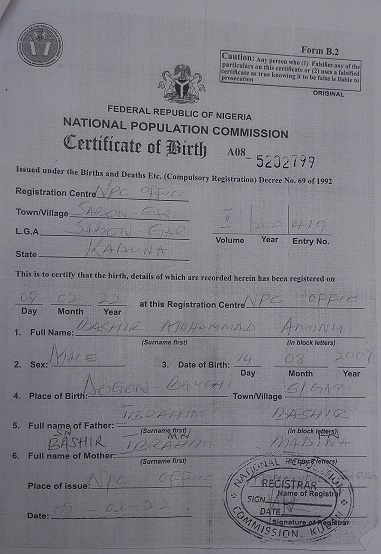 Form B.2
Caution: Any person who (1) Falsifies any of the
particulars on this certificate or (2) uses a falsified
certificate as true knowing it to be false is liable to
prosecution
ORIGINAL
FEDERAL REPUBLIC OF NIGERIA
NATIONAL POPULATION COMMISSION
Certificate of Birth A08 5202799
Issued under the Births and Deaths Etc. (Compulsory Registration) Decree No. 69 of 1992
Registration Centre NPC OFFICE
Town/Village SABON-GARI
L.G.A SABON-GARI
State KADUNA
Volume Year Entry No.
This is to certify that the birth, details of which are recorded herein has been registered on
02 22 at this Registration Centre NPC OFFICE
Day Month Year
1. Full Name: BASHIR MUHAMMAD AMINU
(Surname first) (in block letters)
2. Sex: MALE 3. Date of Birth: 14 08
Day Month Year
4. Place of Birth: DOGON-BAUCHI Town/Village S/GARI
5. Full name of Father: IBRAHIM BASHIR
(Surname first) (in block letters)
SN MN
BASHIR IBRAHIM MADINA
6. Full name of Mother:
(Surname first) (in block letters)
Place of issue: NPC OFFICE
Name of Registrar
Date: 02-22
Signature of Registrar
NATIONAL
REGISTRAR
SIGN
DATE
COMMISSION